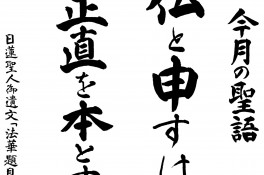 今月の聖語
仏と申すは
正直を本と
日蓮聖人御遺文「法華題目